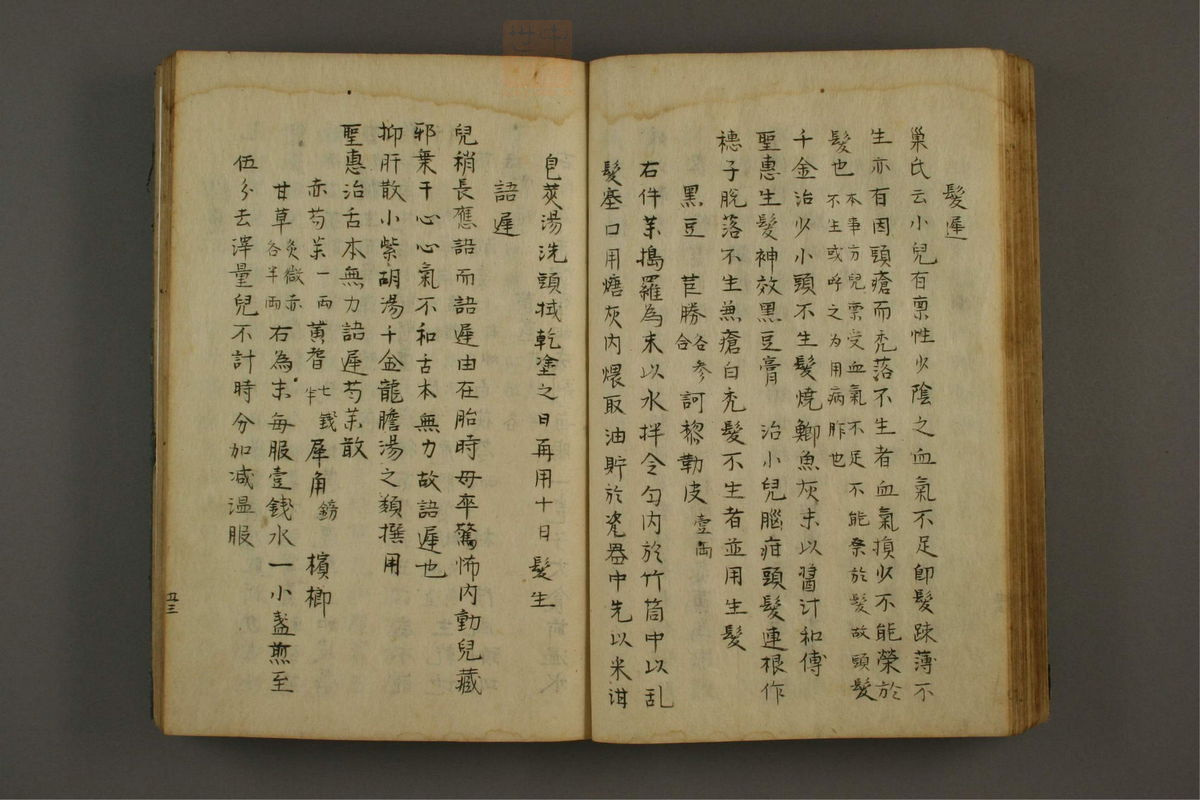 髮遲
巢氏云小兒有禀性少陰之血氣不足即髮踈薄不
生亦有因頭瘡而禿落不生者血氣損少不能榮於
髮也本事方兒禀受血氣不足不能榮於髮故頭髮
不生或呼之為用病胙也
千金治少小頭不生髮燒鯽魚灰末以醬汁和傅
聖惠生髮神效黑豆膏 治小兒腦疳頭髮連根作
穗子脫落不生兼瘡白禿髮不生者並用生髮
黑豆 苣勝各參合 訶黎勒皮壹兩
右件藥搗羅為末以水拌令勻內於竹筒中以乱
髮塞口用煻灰內煨取油貯於瓷器中先以米泔
皂莢湯洗頭拭乾塗之日再用十日髮生
語遲
兒稍長應語而語遲由在胎時母卒驚怖內動兒藏
邪乗干心心氣不和舌本無力故語遲也
抑肝散小柴胡湯千金龍膽湯之類撰用
聖惠治舌本無力語遲芍藥散
赤芍藥一兩 黄耆七錢半 犀角 檳榔
甘草炙微赤各半兩 右為末每服壹錢水一小盞煎至
伍分去滓量兒不計時分加減温服
五三